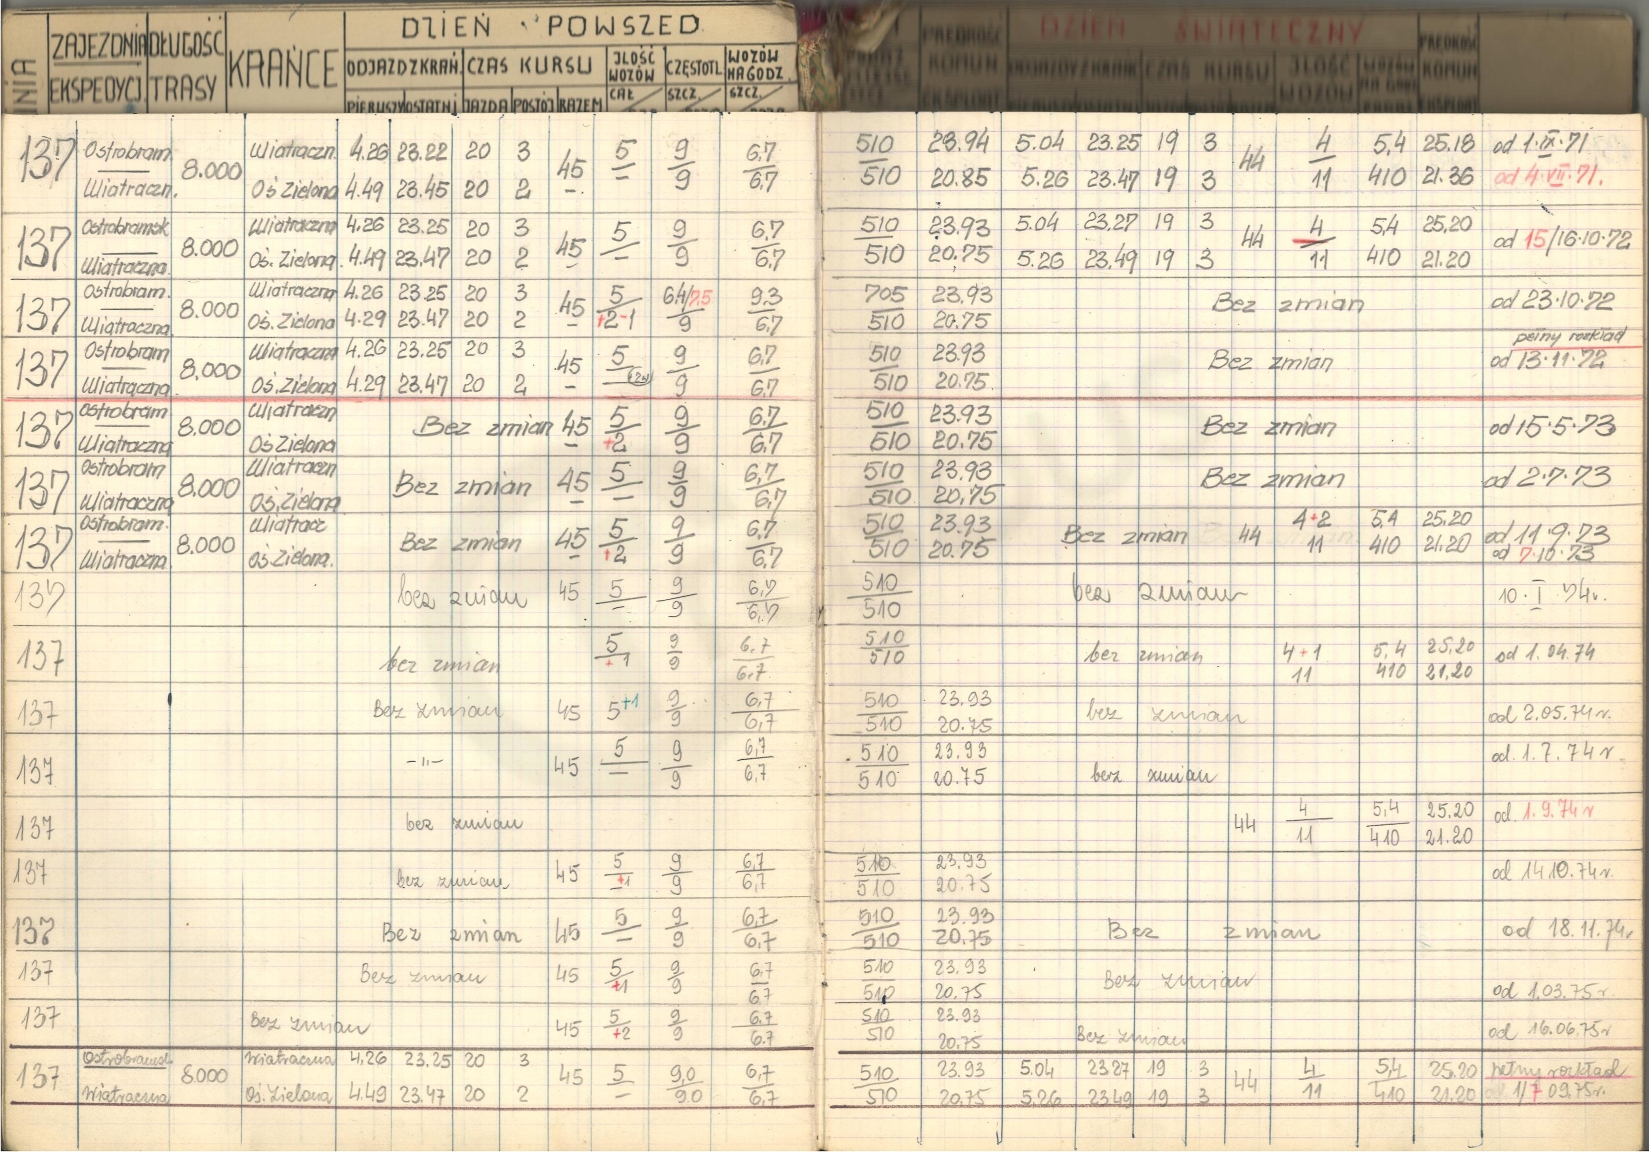 LINIA ZAJEZDNIA EKSPEDYCJ. DŁUGOŚĆ TRASY KRAŃCE DZIEŃ POWSZED
ODJAZD Z KRAŃ. CZAS KURSU JLOŚĆ WOZÓW CZĘSTOTL WOZÓW NA GODZ.
PIERUSZY OSTATNI JAZDA POSTÓJ RAZEM CAŁ SZCZ. SZCZ.
PRĘDKOŚĆ KOMUN DZIEŃ ŚWIĄTECZNY PRĘDKOŚĆ KOMUN
ODJAZD Z KRAŃ CZAS KURSU JLOŚĆ WOZÓW
137 Ostrobram. 8.000 Wiatraczn. 4.26 23.22 20 3 45 5 9 6,7 510 23.94 5.04 23.25 19 3 44 4 5,4 25.18 od 1.IX.71
Wiatraczn. Oś Zielona 4.49 23.45 20 2 – – 9 6,7 510 20.85 5.26 23.47 19 3 11 410 21.36 od 4.VII.71.
137 Ostrobramsk 8.000 Wiatraczna 4.26 23.25 20 3 45 5 9 6,7 510 23.93 5.04 23,27 19 3 44 4 5,4 25,20 od 15/16.10.72
Wiatraczna Oś. Zielona 4.49 23.47 20 2 – – 9 6,7 510 20.75 5.26 23,49 19 3 11 410 21.20
137 Ostrobram. 8.000 Wiatraczna 4.26 23.25 20 3 45 5 6,4/7,5 9.3 705 23.93 Bez zmian od 23.10.72
Wiatraczna Oś. Zielona 4.29 23.47 20 2 – +2-1 9 6,7 510 20.75
137 Ostrobram 8,000 Wiatraczna 4.26 23.25 20 3 45 5 9 6,7 510 23.93 Bez zmian pełny rozkład od 13.11.72
Wiatraczna Oś. Zielona 4.29 23.47 20 2 – 9 6,7 510 20.75.
137 Ostrobram 8.000 Wiatraczn Bez zmian 45 5 9 6,7 510 23.93 Bez zmian od 15.5.73
Wiatraczna Oś Zielona – +2 9 6,7 510 20.75
137 Ostrobram 8.000 Wiatraczn Bez zmian 45 5 9 6,7 510 23.93 Bez zmian od 2.7.73
Wiatraczna Oś. Zielona – – 9 6,7 510 20,75
137 Ostrobram. 8.000 Wiatracz Bez zmian 45 5 9 6,7 510 23.93 Bez zmian 44 4+2 5,4 25.20 od 11.9.73
Wiatraczna Oś Zielona. – +2 9 6,7 510 20.75 11 410 21.20 od 7.10.73
137 bez zmian 45 5 9 6,7 510 bez zmian 10.I.74r.
– 9 6,7 510
137 bez zmian 5 9 6,7 510 bez zmian 4+1 5,4 25,20 od 1.04.74
+1 9 6,7 510 11 410 21,20
137 Bez zmian 45 5+1 9 6,7 510 23.93 bez zmian od 2.05.74r.
9 6,7 510 20.75
137 –"– 45 5 9 6,7 510 23.93 bez zmian od. 1.7.74r
– 9 6,7 510 20.75
137 bez zmian 44 4 5,4 25.20 od. 1.9.74r
11 410 21.20
137 bez zmian 45 5 9 6,7 510 23.93 od 14.10.74r.
+1 9 6,7 510 20.75
137 Bez zmian 45 5 9 6,7 510 23.93 Bez zmian od 18.11.74r.
– 9 6,7 510 20.75
137 Bez zmian 45 5 9 6,7 510 23.93 Bez zmian od 1.03.75r.
+1 9 6,7 510 20.75
137 Bez zmian 45 5 9 6,7 510 23.93 Bez zmian od 16.06.75r
+2 9 6,7 510 20.75
137 Ostrobramsk 8.000 Wiatraczna 4.26 23.25 20 3 45 5 9,0 6,7 510 23.93 5.04 23 27 19 3 44 4 5,4 25.20 pełny rozkład
Wiatraczna Oś. Zielona 4.49 23.47 20 2 – 9.0 6,7 510 20,75 5,26 23 49 19 3 11 410 21.20 1/7 09.75r.